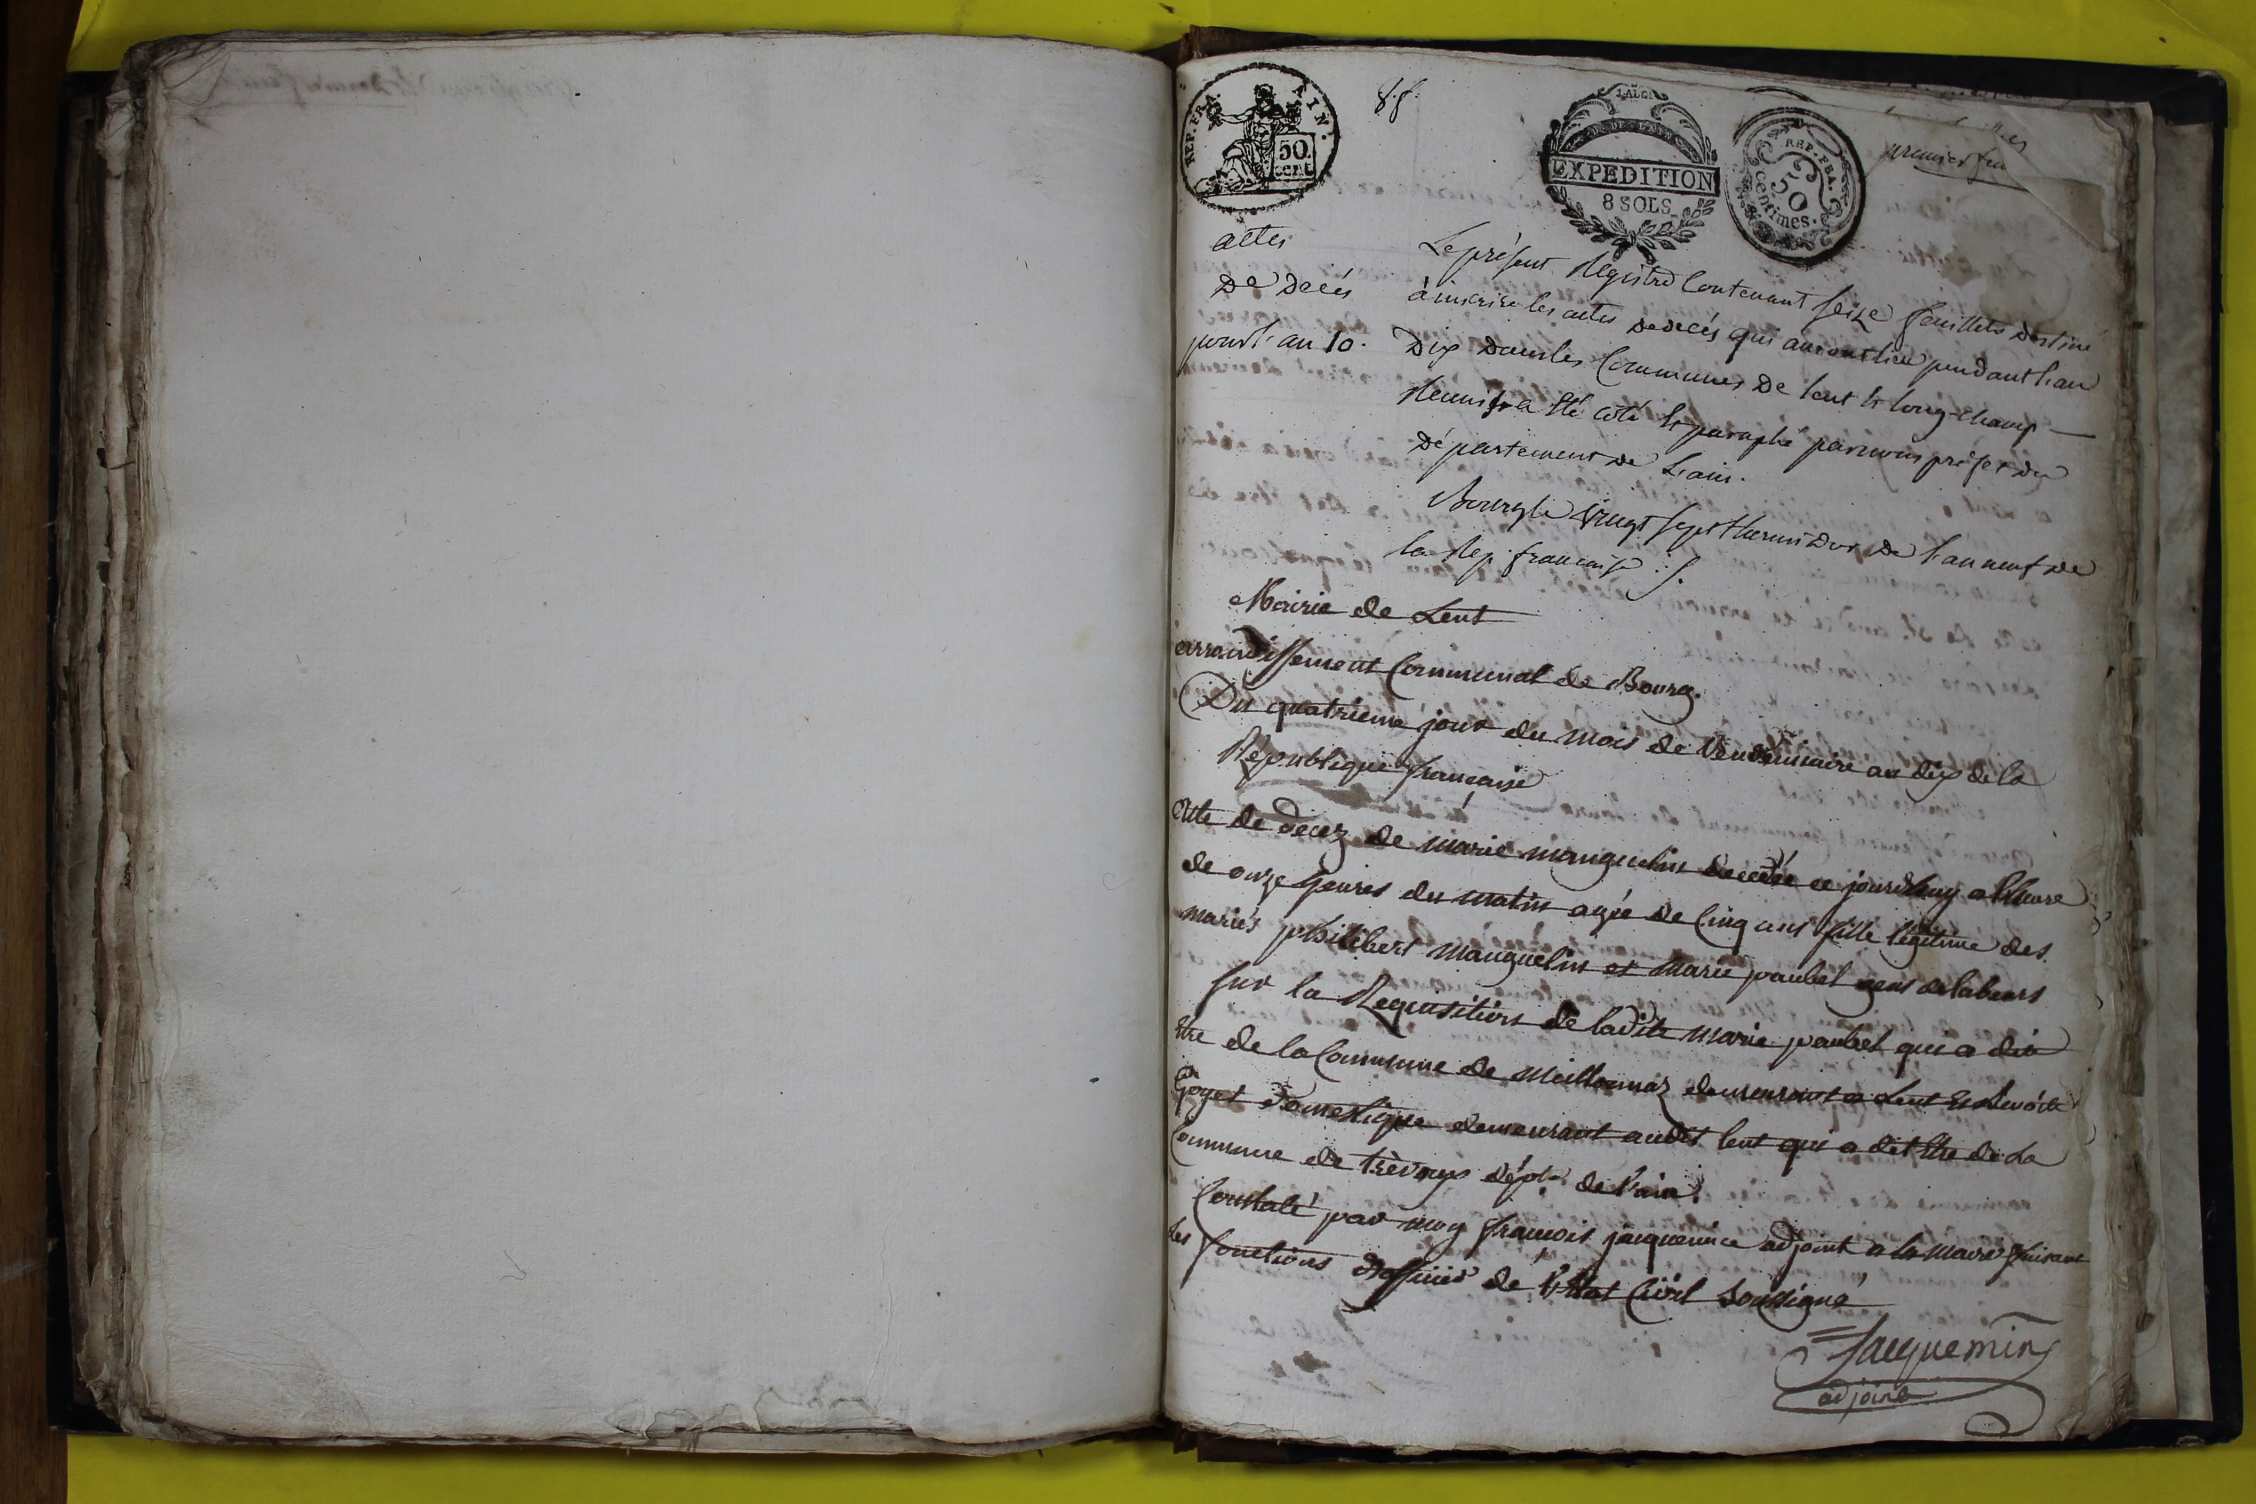 REP. FRA. AIN.
50 cent
8. f.
EXPEDITION
8 SOLS
REP. FRA.
50
centimes.
premier feu
actes
De Decés
pour l'an 10.
Le présent Registre Contenant seize feuillets destiné
à inscrire les actes de decés qui auront lieu pendant l'an
Dix dans les Communes de Lent & Long-champ
Réunis a été coté & paraphé par nous préfet du
Département de L'ain.
Bourg le vingt sept thermidor de l'an neuf de
la Rep. francaise
Mairie de Lent
arrondissement Communal de Bourg.
Du quatrieme jour du mois de Vendemiaire an dix de la
République française
Acte de decez de marie manguelin decedée ce jourdhuy a l'heure
de onze heures du matin agée de Cinq ans fille légitime des
mariés philibert manguelin et marie paubel gens de labeurs
sur la Requisition de ladite marie paubel qui a dit
Etre de la Commune de meillonnaz demeurant a Lent Et
Goyet domestique demeurant audit lent qui a dit Etre de La
Commune de trèvoux dépt. de l'ain.
Constaté par moy françois jacquemin adjoint a la maire faisant
les fonctions d'officier de l'Etat Civil soussigné
Jacquemin
adjoint